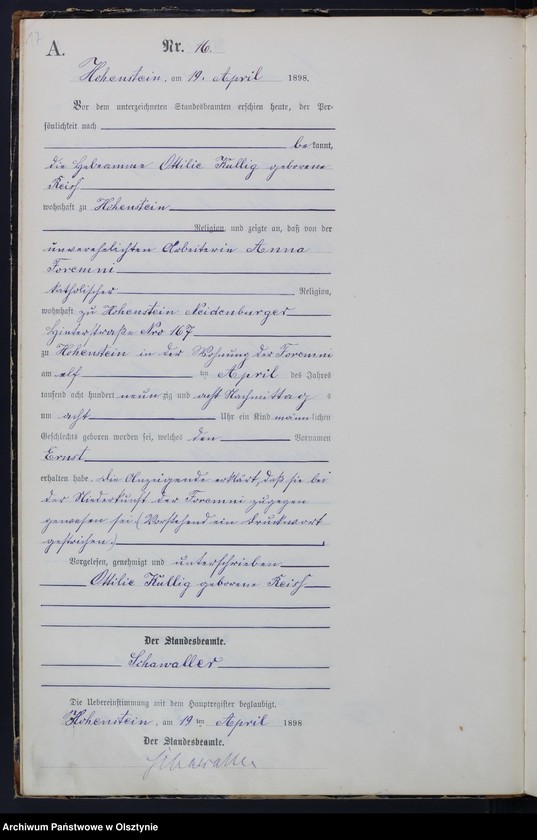 17
A.
Nr. 16.
Hohenstein, am 19. April 1898.
Vor dem unterzeichneten Standesbeamten erschien heute, der Per-
sönlichkeit nach
be kannt,
die Hebeamme Ottilie Kullig geborene
Reiss
wohnhaft zu Hohenstein
Religion, und zeigte an, daß von der
unverehelichten Arbeiterin Anna
Foremni
katholischer Religion,
wohnhaft zu Hohenstein Neidenburger
Hinterstraße Nro 167
zu Hohenstein in der Wohnung der Foremni
am elf ten April des Jahres
tausend acht hundert neun zig und acht Nachmittag s
um acht Uhr ein Kind männ lichen
Geschlechts geboren worden sei, welches den Vornamen
Ernst
erhalten habe. Die Anzeigende erklärt, daß sie bei
der Niederkunft der Foremni zugegen
gewesen sei. (Vorstehend ein Druckwort
gestrichen.)
Vorgelesen, genehmigt und unterschrieben
Ottilie Kullig geborene Reiss
Der Standesbeamte.
Schawaller
Die Uebereinstimmung mit dem Hauptregister beglaubigt.
Hohenstein, am 19 ten April 1898
Der Standesbeamte.
Schawaller
Archiwum Państwowe w Olsztynie